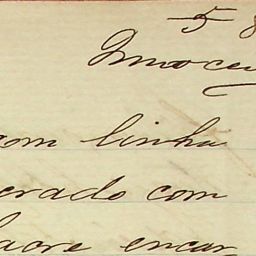 5 8
Innocen
com linha
crado com
lacre encar